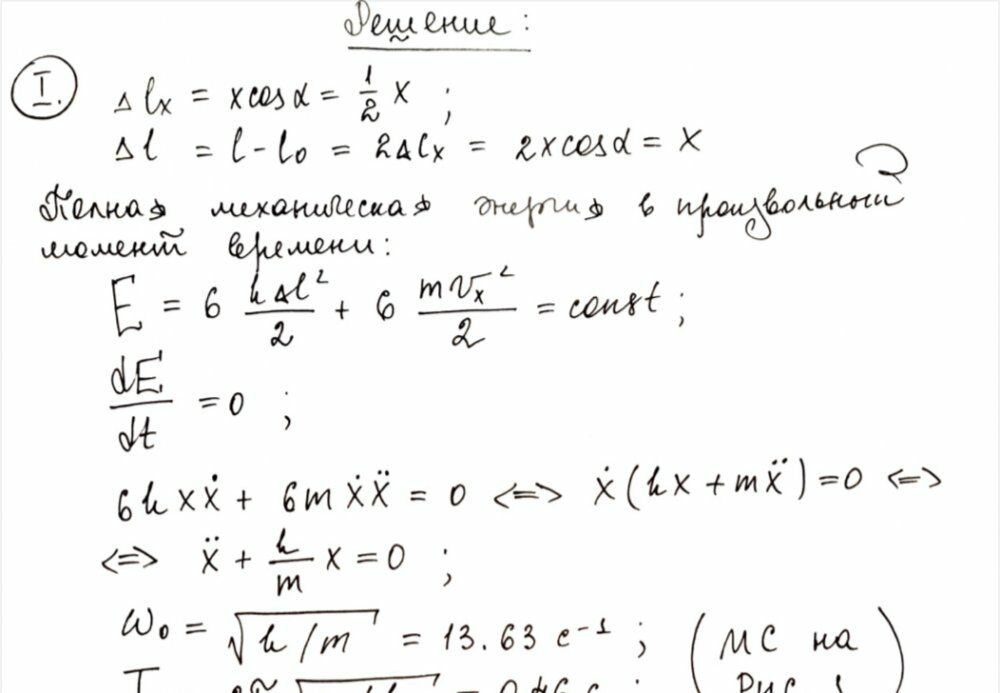 Решение:
I. Δlx = x cos α = 1/2 x ;
Δl = l - l₀ = 2Δlx = 2x cos α = x
Полная механическая энергия в произвольный
момент времени:
E = 6 kΔl²/2 + 6 mvx²/2 = const ;
dE/dt = 0 ;
6kxẋ + 6mẋẍ = 0 <=> ẋ(kx + mẍ) = 0 <=>
<=> ẍ + k/m x = 0 ;
ω₀ = √(k/m) = 13.63 с⁻¹ ; (МС на